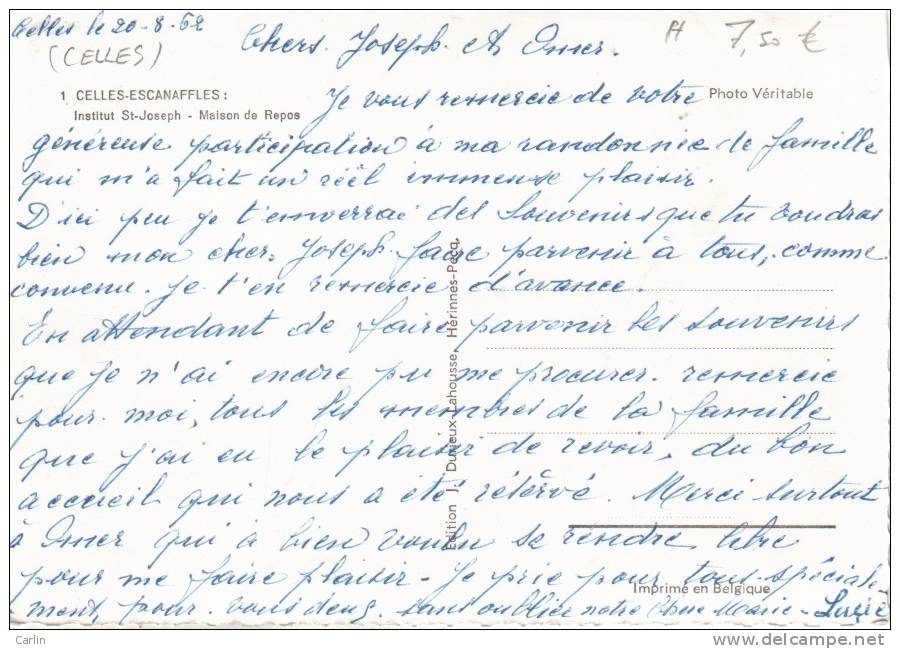 Celles le 20-8-62
(CELLES)
Chers Joseph et Omer.
H 7,50 €
1 CELLES-ESCANAFFLES :
Institut St-Joseph - Maison de Repos
Photo Véritable
Je vous remercie de votre
généreuse participation à ma randonnée de famille
qui m'a fait un réel immense plaisir.
D'ici peu je t'enverrai des souvenirs que tu voudras
bien mon cher Joseph faire parvenir à tous, comme
convenu. Je t'en remercie d'avance.
En attendant de faire parvenir les souvenirs
que je n'ai encore pu me procurer. remercie
pour moi, tous les membres de la famille
que j'ai eu le plaisir de revoir, du bon
accueil qui nous a été réservé. Merci surtout
à Omer qui à bien voulu se rendre libre
pour me faire plaisir - Je prie pour tous spéciale-
ment, pour vous deux, sans oublier notre Chère Marie-
Edition J. Durieux-Lahousse, Hérinnes-Pecq.
Imprimé en Belgique
Carlin
www.delcampe.net